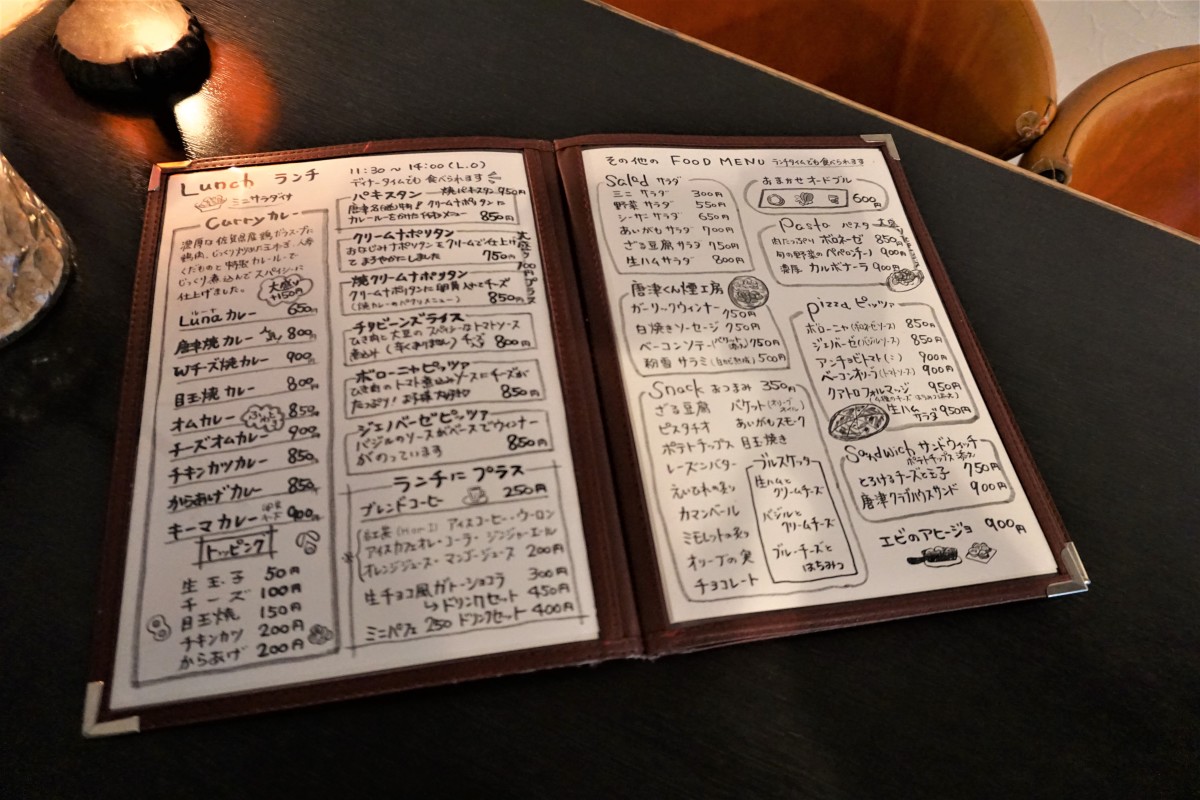 Lunch ランチ
ミニサラダ付
Curry カレー
濃厚な佐賀県産鶏ガラスープに
鶏肉、じっくり炒めた玉ねぎ、人参
くだものと特製カレールーで
じっくり煮込んでスパイシーに
仕上げました。
大盛り
+150円
ルーナ
Lunaカレー 650円
唐津焼カレー 800円
Wチーズ焼カレー 900円
目玉焼カレー 800円
オムカレー 850円
チーズオムカレー 900円
チキンカツカレー 850円
からあげカレー 850円
キーマカレー 900円
トッピング
生玉子 50円
チーズ 100円
目玉焼 150円
チキンカツ 200円
からあげ 200円
11:30~14:00(L.O)
ディナータイムでも食べられます
パキスタン 焼パキスタン950円
クリームナポリタンに
カレールーをかけた 850円
クリームナポリタン
おなじみナポリタンをクリームで仕上げ
てまろやかにしました 750円
焼クリームナポリタン
クリームナポリタンに卵黄入せてチーズ
(焼カレーのパクリメニュー) 850円
チリビーンズライス
ひき肉に大豆のスパイシーなトマトソース
煮込み (辛くありません) 800円
ボローニャピッツァ
ひき肉のトマト煮込みソースにチーズが
たっぷり! お子様大好き♡ 850円
ジェノバーゼピッツァ
バジルのソースがベースでウィンナー
がのっています 850円
ランチにプラス
ブレンドコーヒー 250円
紅茶 (Hot・I) アイスコーヒー・ウーロン
アイスカフェオレ・コーラ・ジンジャーエール
オレンジジュース・マンゴージュース 200円
生チョコ風ガトーショコラ 300円
↳ドリンクセット 450円
ミニパフェ 250 ドリンクセット 400円
その他の FOOD MENU ランチタイムでも食べられます
Salad サラダ
ミニサラダ 300円
野菜サラダ 550円
シーザーサラダ 650円
あいがもサラダ 700円
ざる豆腐サラダ 750円
生ハムサラダ 800円
唐津くん煙工房
ガーリックウィンナー 750円
白焼きソーセージ 750円
ベーコンソテー 750円
粉雪サラミ 500円
Snack おつまみ 350円
ざる豆腐
ピスタチオ
ポテトチップス
レーズンバター
えいひれの炙り
カマンベール
ミモレットの炙り
オリーブの実
チョコレート
バケット(オリーブオイル)
あいがもスモーク
目玉焼き
ブルスケッタ
生ハムと
クリームチーズ
バジルと
クリームチーズ
ブルーチーズと
はちみつ
おまかせオードブル
600円
Pasta パスタ
肉たっぷりボロネーゼ 850円
旬の野菜のペペロンチーノ 900円
濃厚カルボナーラ 900円
pizza ピッツァ
ボローニャ(ボロネーゼソース) 850円
ジェノバーゼ(バジルソース) 850円
アンチョビトマト(ミニ) 900円
ベーコンオリーブ(トマトソース) 900円
クアトロフォルマッジ 950円
生ハム
サラダ 950円
Sandwich サンドウィッチ
ポテトチップス添え
とろけるチーズと玉子 750円
唐津クラブハウスサンド 900円
エビのアヒージョ 900円